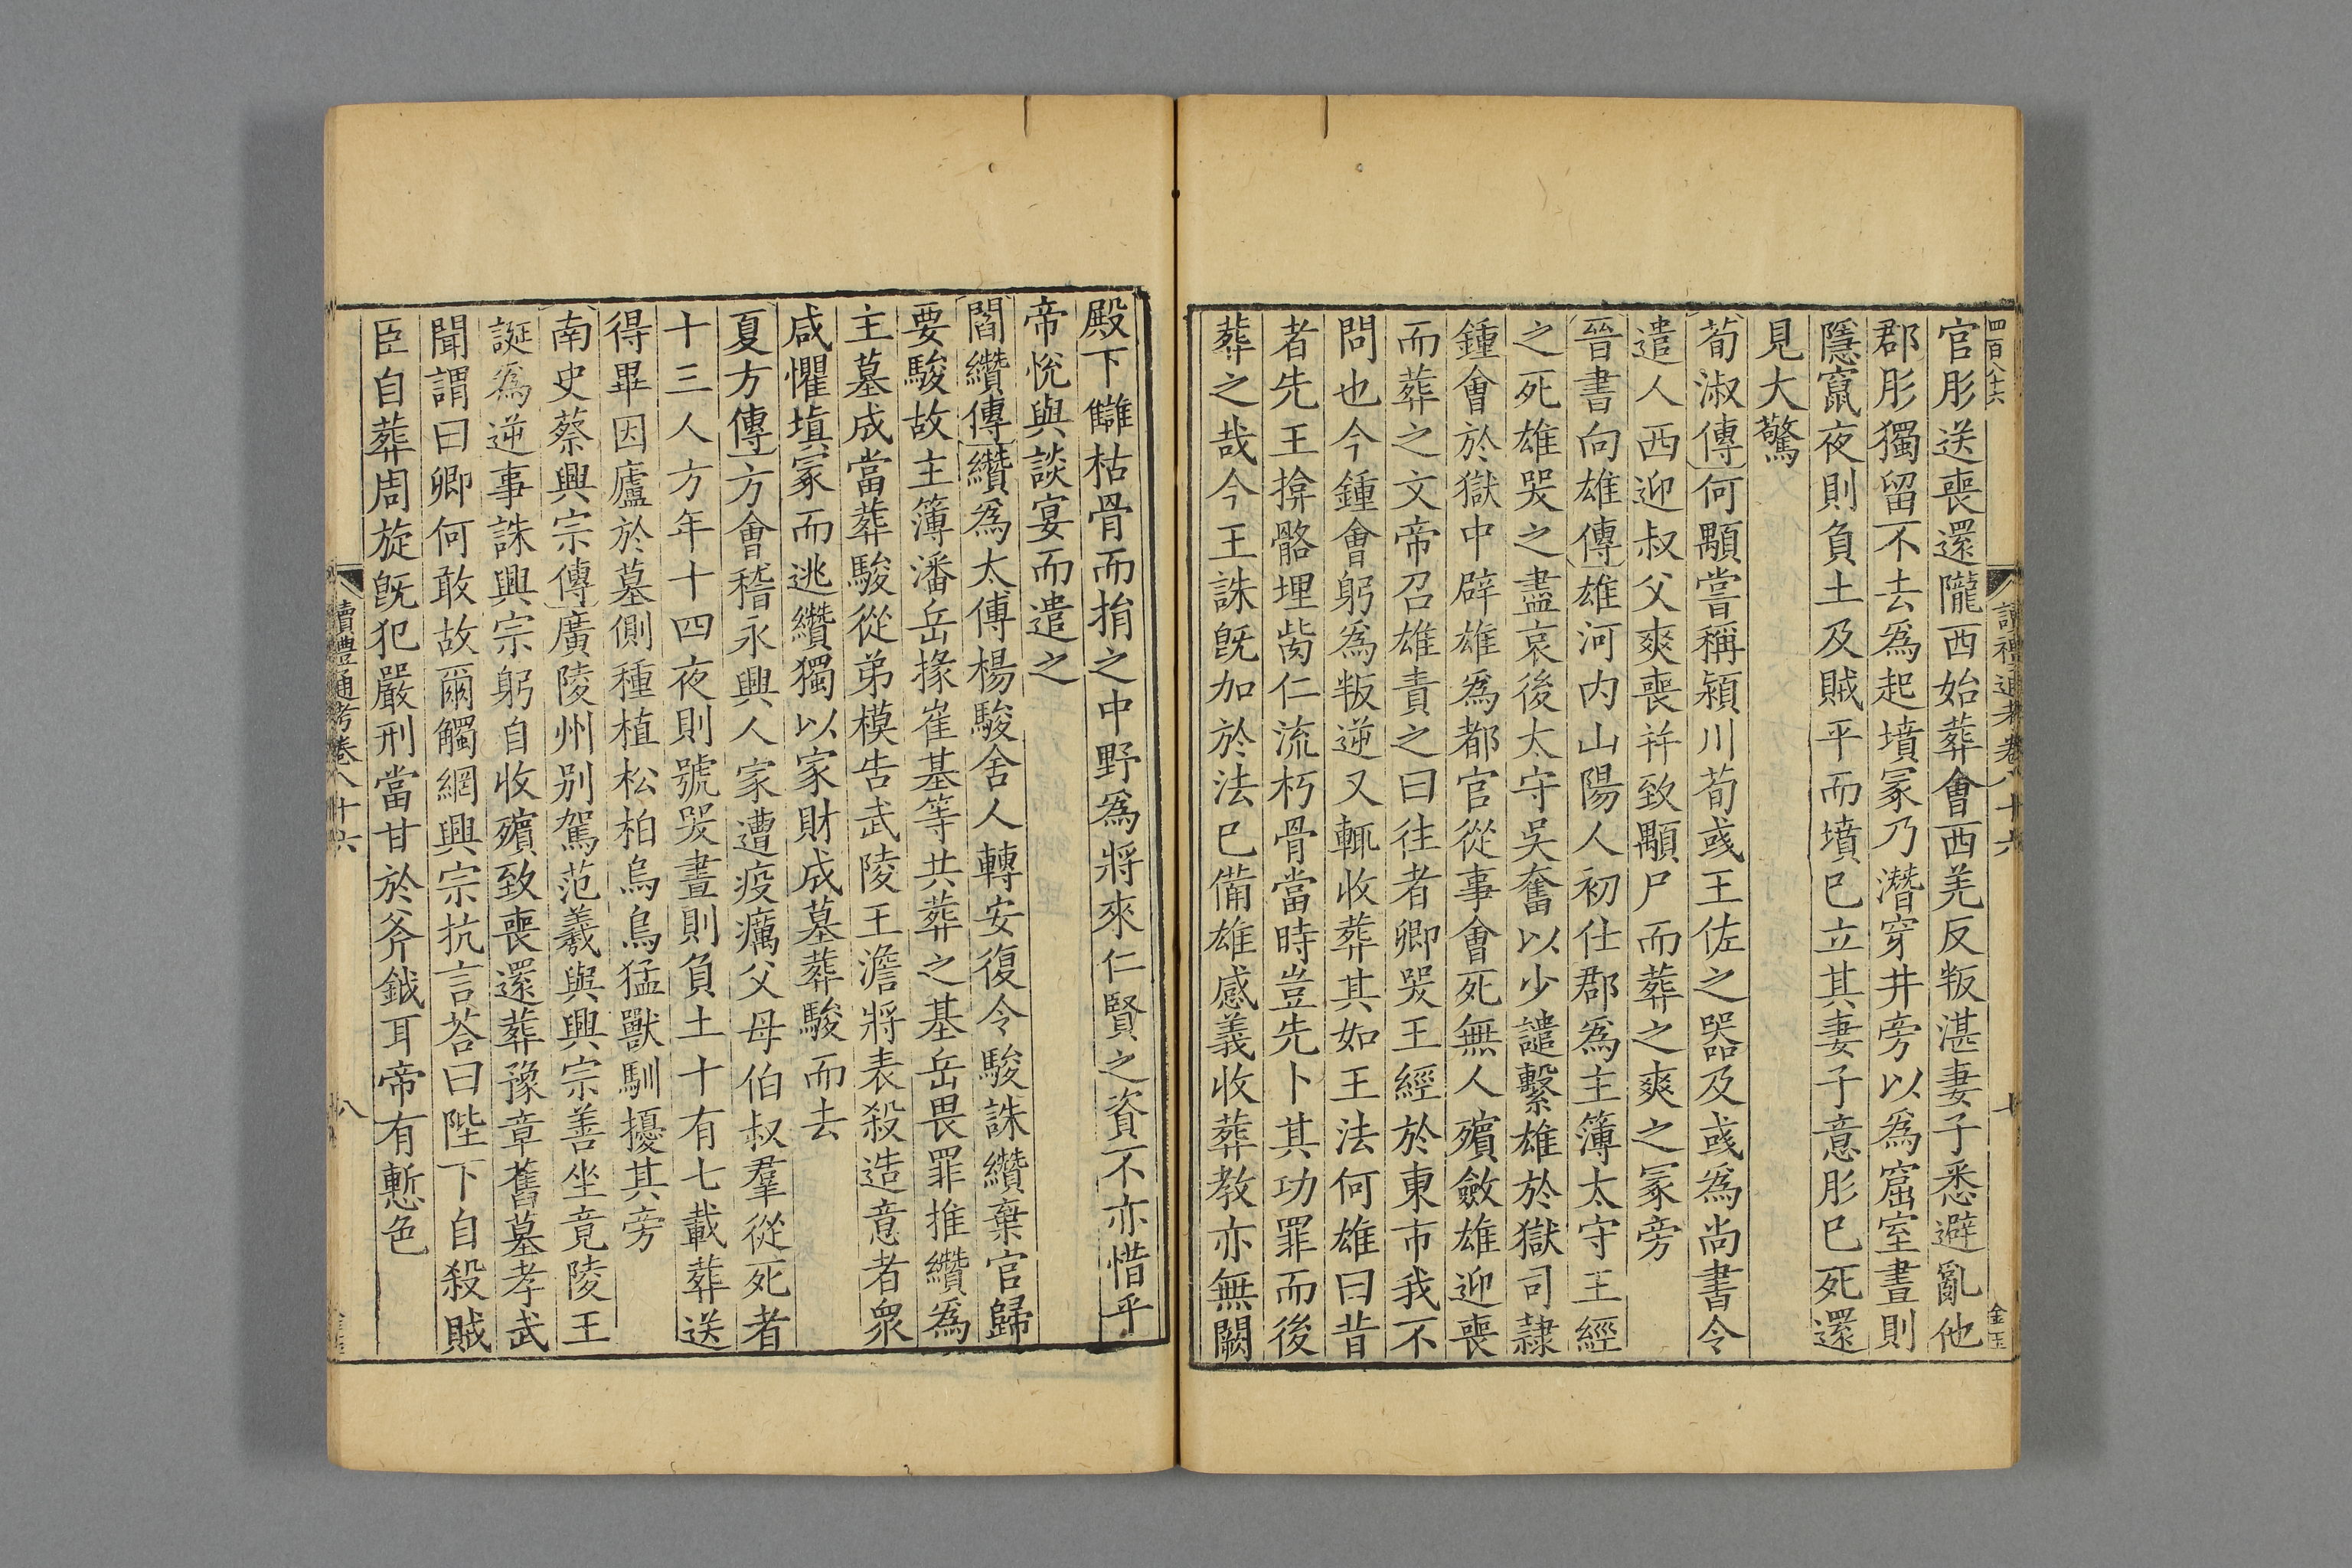 四百八十六
讀禮通考卷八十六
七
金玉
官彤送喪還隴西始葬會西羌反叛湛妻子悉避亂他
郡彤獨留不去爲起墳冢乃潛穿井旁以爲窟室晝則
隱竄夜則負土及賊平而墳已立其妻子意彤已死還
見大驚
荀淑傳何顒嘗稱潁川荀彧王佐之器及彧爲尚書令
遣人西迎叔父爽喪并致顒尸而葬之爽之冢旁
晉書向雄傳雄河内山陽人初仕郡爲主簿太守王經
之死雄哭之盡哀後太守吳奮以少譴繫雄於獄司隷
鍾會於獄中辟雄爲都官從事會死無人殯斂雄迎喪
而葬之文帝召雄責之曰往者卿哭王經於東市我不
問也今鍾會躬爲叛逆又輒收葬其如王法何雄曰昔
者先王揜骼埋胔仁流朽骨當時豈先卜其功罪而後
葬之哉今王誅旣加於法已備雄感義收葬教亦無闕
殿下讎枯骨而捐之中野爲將來仁賢之資不亦惜乎
帝悅與談宴而遣之
閻纘傳纘爲太傅楊駿舍人轉安復令駿誅纘棄官歸
要駿故主簿潘岳掾崔基等共葬之基岳畏罪推纘爲
主墓成當葬駿從弟模告武陵王澹將表殺造意者衆
咸懼塡冢而逃纘獨以家財成墓葬駿而去
夏方傳方會稽永興人家遭疫癘父母伯叔羣從死者
十三人方年十四夜則號哭晝則負土十有七載葬送
得畢因廬於墓側種植松柏烏鳥猛獸馴擾其旁
南史蔡興宗傳廣陵州别駕范羲與興宗善坐竟陵王
誕爲逆事誅興宗躬自收殯致喪還葬豫章舊墓孝武
聞謂曰卿何敢故爾觸網興宗抗言荅曰陛下自殺賊
臣自葬周旋旣犯嚴刑當甘於斧鉞耳帝有慙色
讀禮通考卷八十六
八